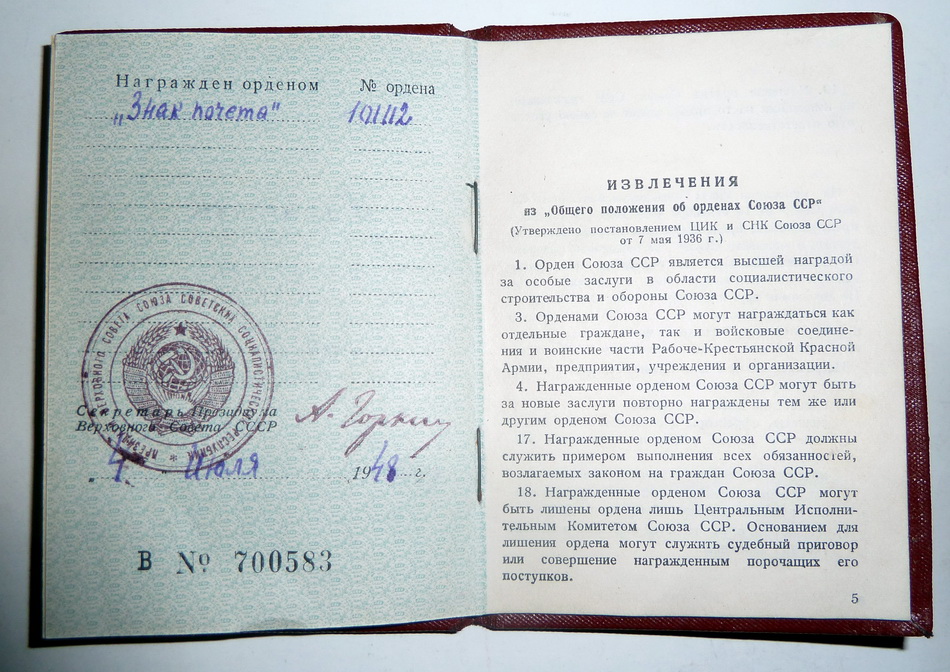 Награжден орденом № ордена
„Знак почета"
Секретарь Президиума
Верховного Совета СССР
А. Горкин
4 Июля 1948 г.
В № 700583
ИЗВЛЕЧЕНИЯ
из „Общего положения об орденах Союза ССР“
(Утверждено постановлением ЦИК и СНК Союза ССР
от 7 мая 1936 г.)
1. Орден Союза ССР является высшей наградой
за особые заслуги в области социалистического
строительства и обороны Союза ССР.
3. Орденами Союза ССР могут награждаться как
отдельные граждане, так и войсковые соедине-
ния и воинские части Рабоче-Крестьянской Красной
Армии, предприятия, учреждения и организации.
4. Награжденные орденом Союза ССР могут быть
за новые заслуги повторно награждены тем же или
другим орденом Союза ССР.
17. Награжденные орденом Союза ССР должны
служить примером выполнения всех обязанностей,
возлагаемых законом на граждан Союза ССР.
18. Награжденные орденом Союза ССР могут
быть лишены ордена лишь Центральным Исполни-
тельным Комитетом Союза ССР. Основанием для
лишения ордена могут служить судебный приговор
или совершение награжденным порочащих его
поступков.
5